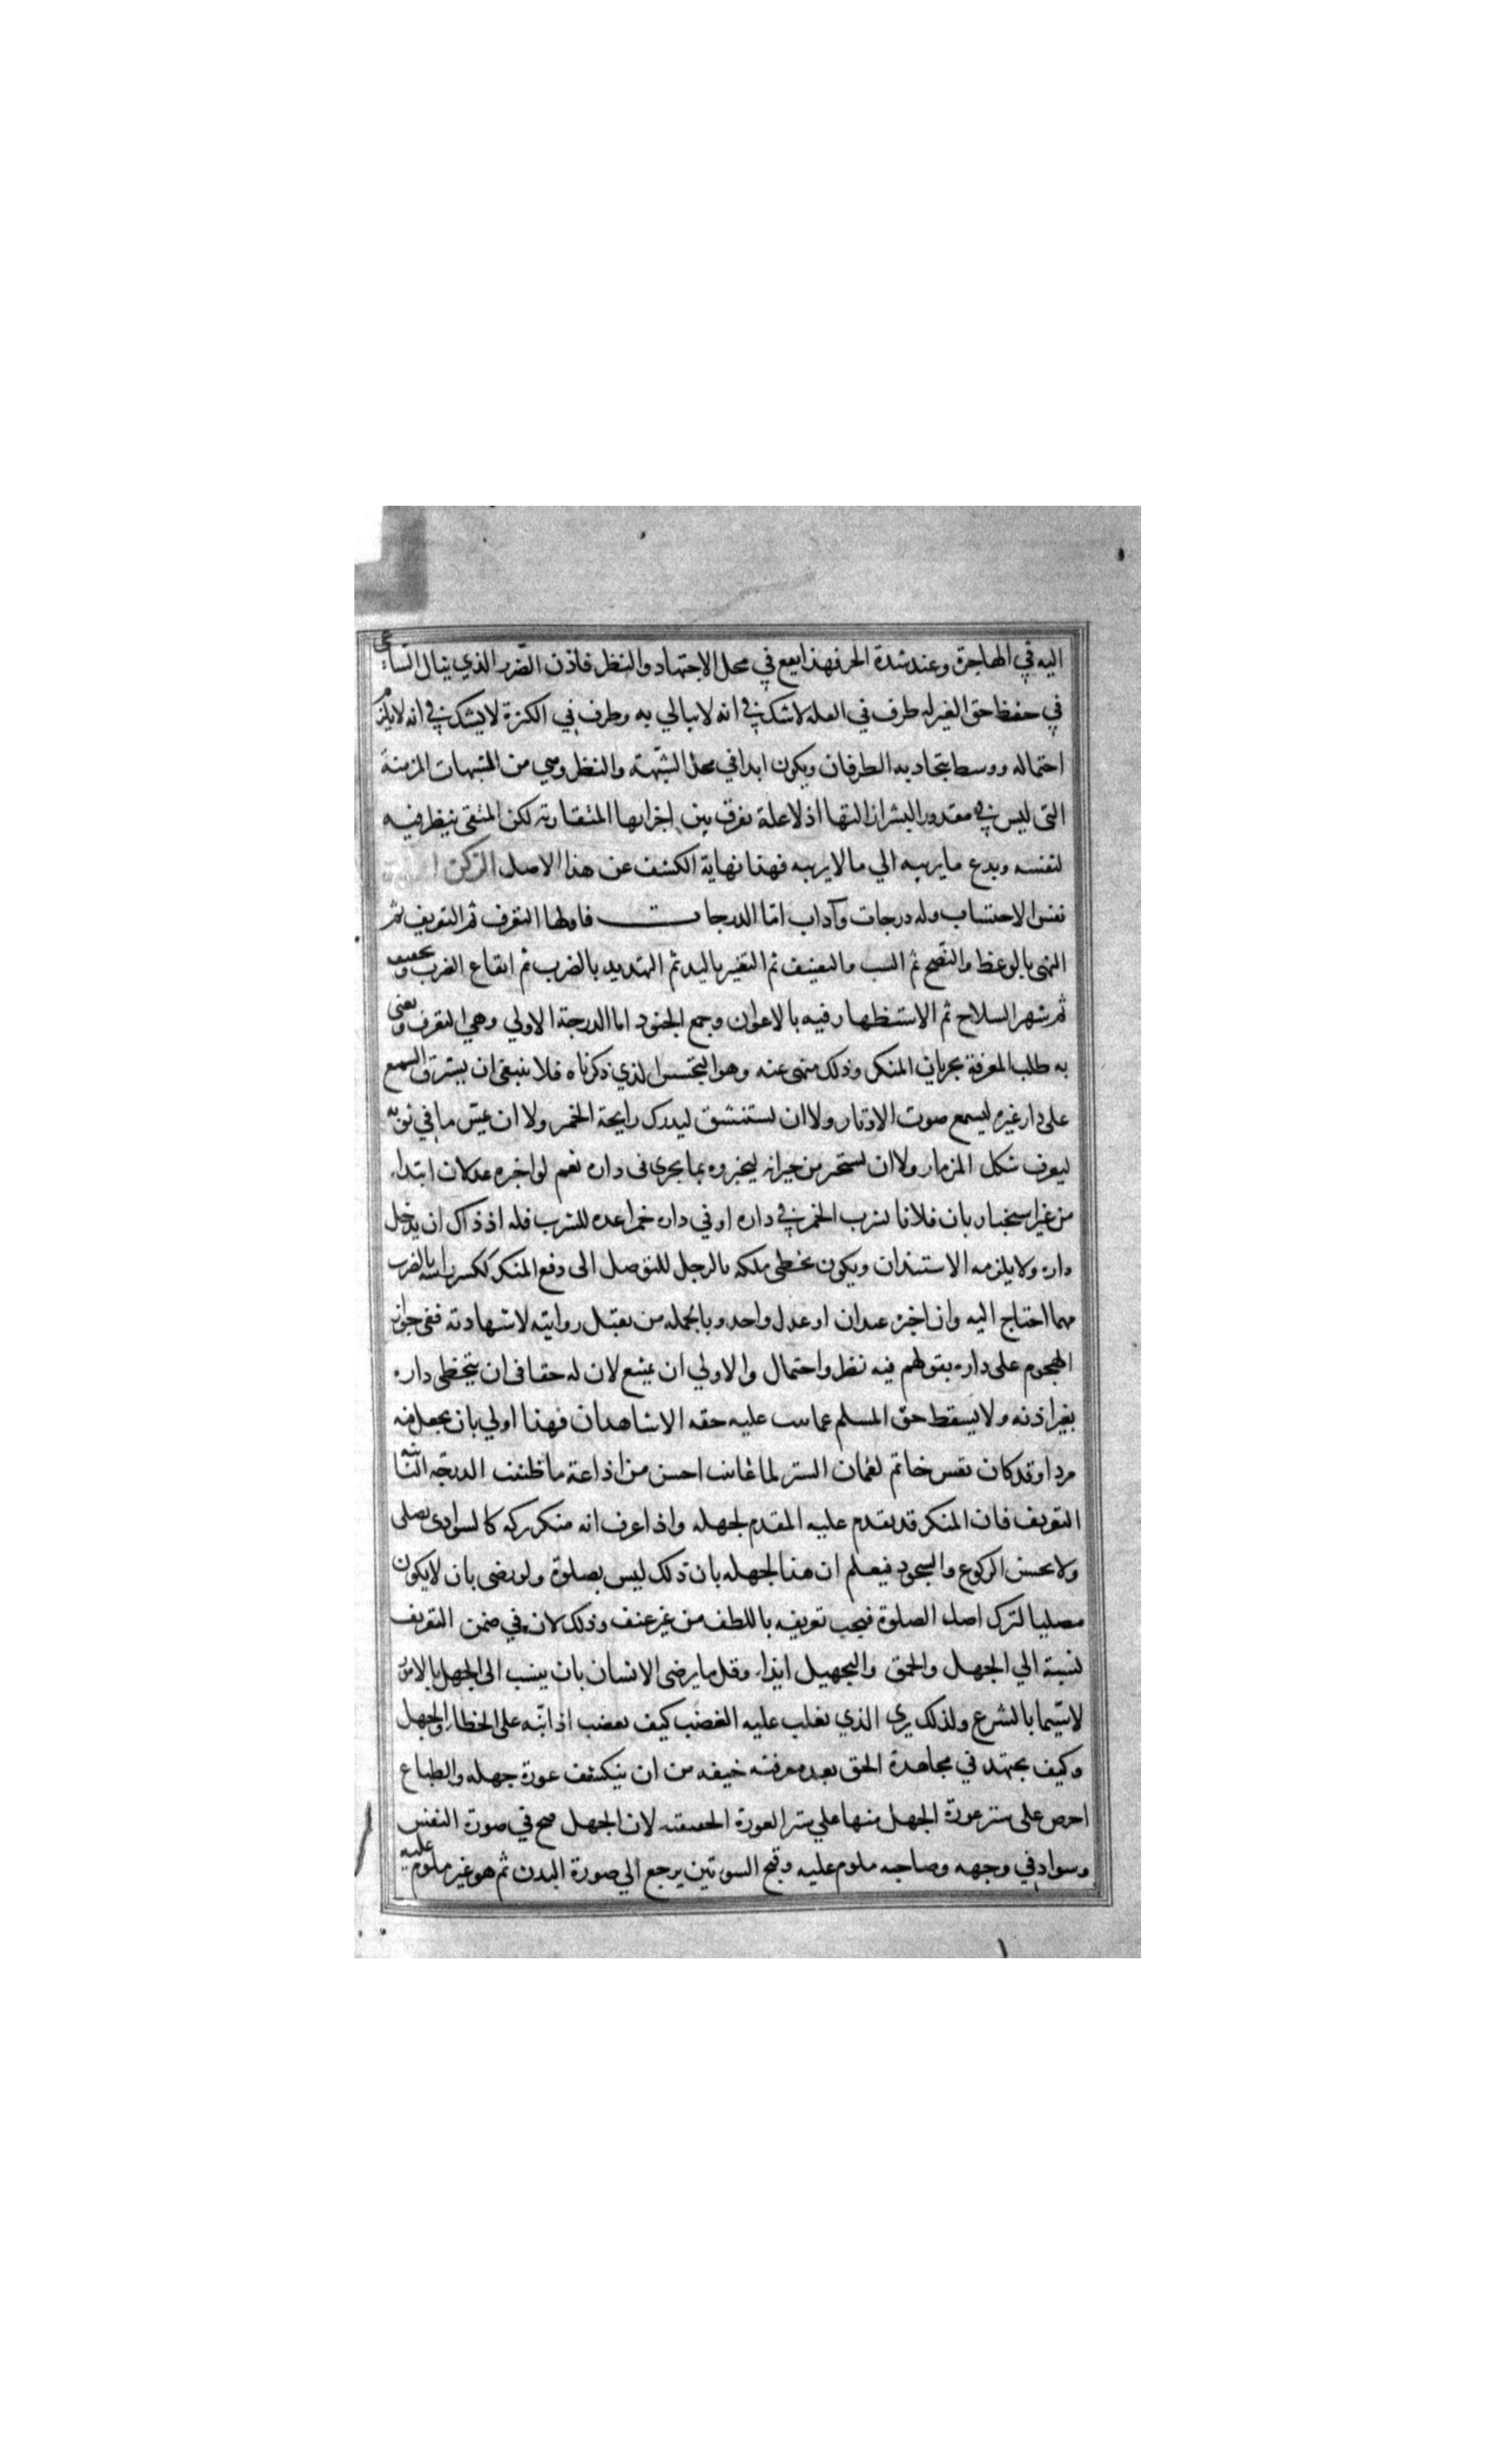 اليه في الهاجرة وعند شدة الحر فهذا يقع في محل الاجتهاد والنظر فاذن الضرر الذي ينال الساعي
في حفظ حق الغير له طرف في القلة لا شك في انه لا يبالي به وطرف في الكثرة لا يشك في انه لا يلزم
احتماله ووسط يتجاذبه الطرفان ويكون ابدا في محل الشبهة والنظر وهي من الشبهات المزمنة
التي ليس في مقدور البشر ازالتها اذ لا علة تفرق بين اجزايها المتقاربة لكن المتقي ينظر فيه
لنفسه ويدع ما يريبه الي ما لا يريبه فهذا نهاية الكشف عن هذا الاصل الركن
نفس الاحتساب وله درجات وآداب امّا الدرجات فاولها التعرف ثم التعريف ثم
النهي بالوعظ والنصح ثم السب والتعنيف ثم التغير باليد ثم التهديد بالضرب ثم ايقاع الضرب وتحقيقه
ثم شهر السلاح ثم الاستظهار فيه بالاعوان وجمع الجنود اما الدرجة الاولي وهي التعرف ونعني
به طلب المعرفة بجريان المنكر وذلك منهي عنه وهو التجسس الذي ذكرناه فلا ينبغي ان يسترق السمع
على دار غيره ليسمع صوت الاوتار ولا ان يستنشق ليدرك رايحة الخمر ولا ان يمس ما في ثوبه
ليعرف شكل المزمار ولا ان يستخبر من جيرانه ليخبروه بما يجري في داره نعم لو اخبره عدلان ابتداء
من غير استخبار بان فلانا يشرب الخمر في داره او في داره خمرا عده للشرب فله اذ ذاك ان يدخل
داره ولا يلزمه الاستيذان ويكون تخطي ملكه بالرجل للتوصل الى دفع المنكر ككسر راسه بالضرب
مهما احتاج اليه وان اخبره عدلان او عدل واحد وبالجمله من تقبل روايته لا شهادته ففي جواز
الهجوم على داره بقولهم فيه نظر واحتمال والاولي ان يمتنع لان له حقا في ان يتخطى داره
بغير اذنه ولا يسقط حق المسلم عما ثبت عليه حقه الا شاهدان فهذا اولي بان يجعل فيه
مردا وقد كان نقس خاتم لقمان الستر لما عاينت احسن من اذاعة ما ظننت الدرجه الثانية
التعريف فان المنكر قد يقدم عليه المقدم لجهله واذا عرف انه منكر تركه كالسوادي يصلي
ولا يحسن الركوع والسجود فيعلم ان هذا لجهله بان ذلك ليس بصلوة ولو رضي بان لا يكون
مصليا لترك اصل الصلوة فيجب تعريفه باللطف من غير عنف وذلك لان في ضمن التعريف
نسبة الي الجهل والحمق والتجهيل ايذاء وقل ما يرضى الانسان بان ينسب الى الجهل بالامور
لا سيما بالشرع ولذلك يري الذي يغلب عليه الغضب كيف يغضب اذا نبّه على الخطا والجهل
وكيف يجتهد في مجاهدة الحق بعد معرفته خيفه من ان ينكشف عورة جهله والطباع
احرص على ستر عورة الجهل منها علي ستر العورة الحقيقيه لان الجهل قبح في صورة النفس
وسواد في وجهه وصاحبه ملوم عليه وقبح السوءتين يرجع الي صورة البدن ثم هو غير ملوم عليه